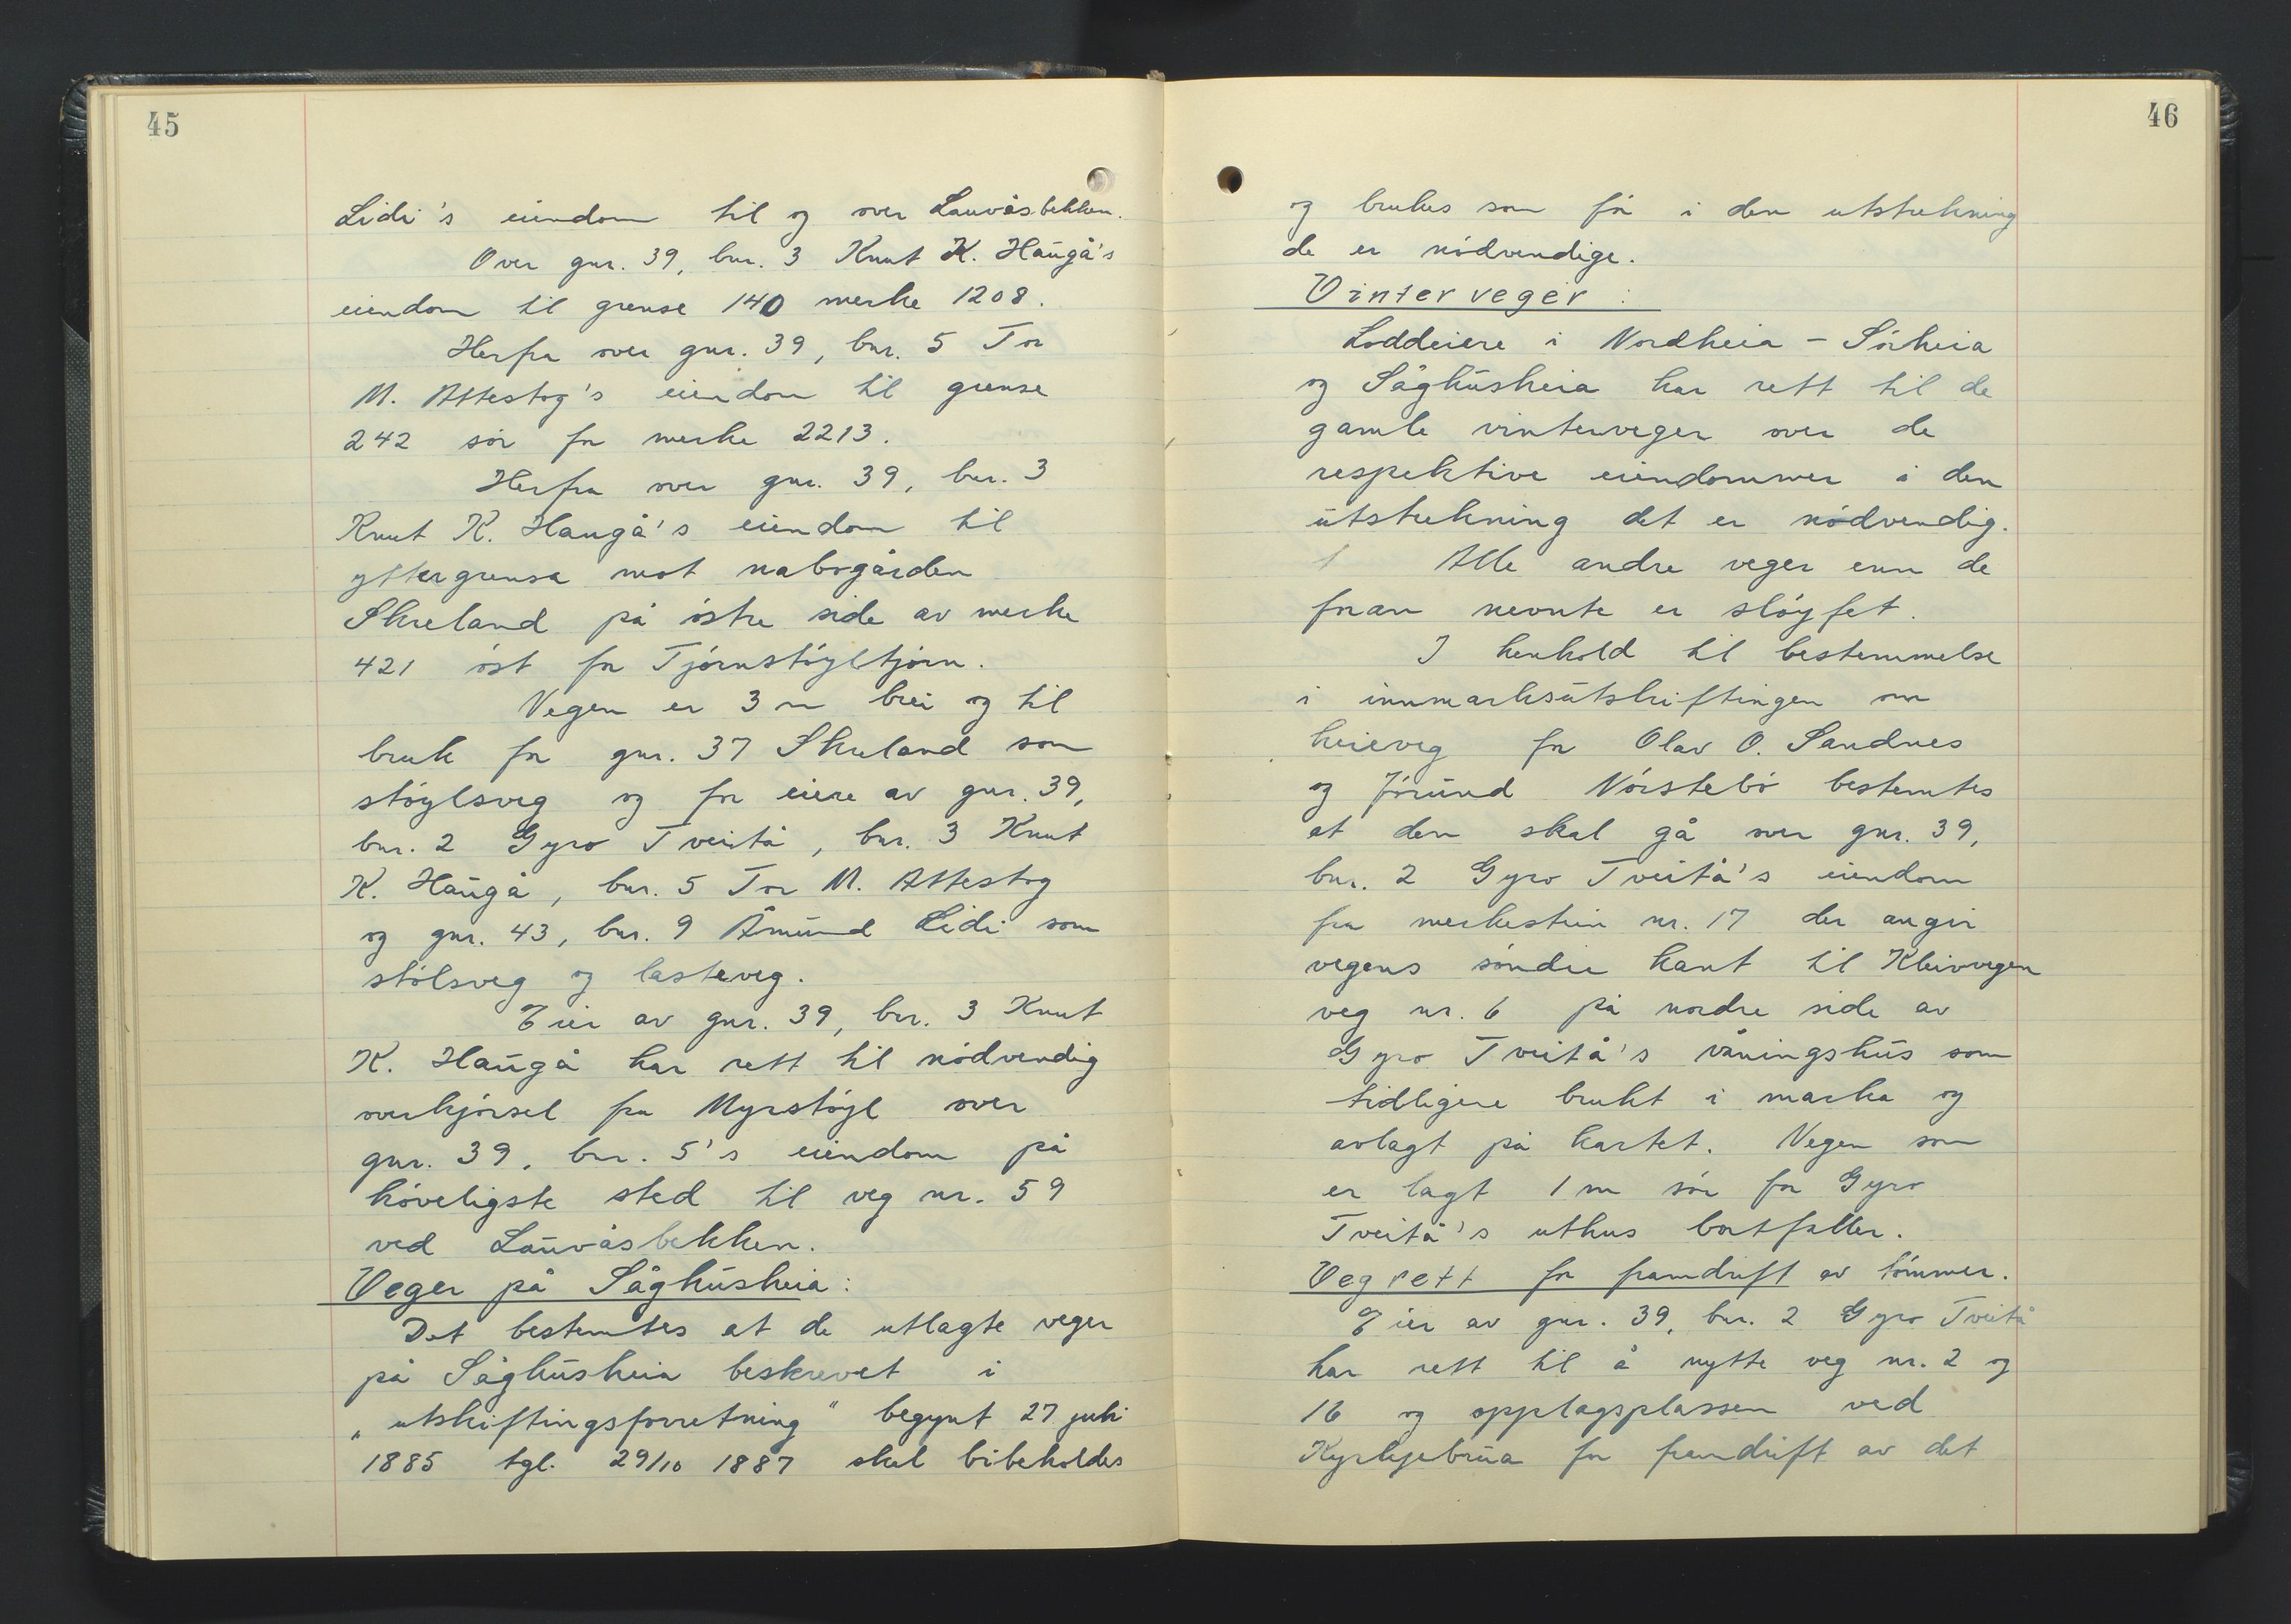 45
Lidi's eiendom til og over Lauvåsbekken.
Over gnr. 39, bnr. 3 Knut K. Haugå's
eiendom til grense 140 merke 1208.
Herfra over gnr. 39, bnr. 5 Tor
M. Attestog's eiendom til grense
242 sör for merke 2213.
Herfra over gnr. 39, bnr. 3
Knut K. Haugå's eiendom til
yttergrensa mot nabogården
Skreland på östre side av merke
421 öst for Tjörnstöyltjörn.
Vegen er 3 m brei og til
bruk for gnr. 37 Skreland som
stöylsveg og for eiere av gnr. 39,
bnr. 2 Gyro Tveitå, bnr. 3 Knut
K. Haugå, bnr. 5 Tor M. Attestog
og gnr. 43, bnr. 9 Åmund Lidi som
stölsveg og lasteveg.
Eier av gnr. 39, bnr. 3 Knut
K. Haugå har rett til nödvendig
overkjörsel fra Myrstöyl over
gnr. 39, bnr. 5's eiendom på
höveligste sted til veg nr. 59
ved Lauvåsbekken.
Veger på Såghusheia:
Det bestemtes at de utlagte veger
på Såghusheia beskrevet i
„utskiftingsforretning" begynt 27 juli
1885 tgl. 29/10 1887 skal bibeholdes
46
og brukes som för i den utstrekning
de er nödvendige.
Vinterveger:
Loddeiere i Nordheia - Sörheia
og Såghusheia har rett til de
gamle vinterveger over de
respektive eiendommer i den
utstrekning det er nödvendig.
Alle andre veger enn de
foran nevnte er slöyfet.
I henhold til bestemmelse
i innmarksutskiftingen om
heieveg for Olav O. Sandnes
og Jörund Nörstebö bestemtes
at den skal gå over gnr. 39,
bnr. 2 Gyro Tveitå's eiendom
fra merkestein nr. 17 der angir
vegens söndre kant til Kleivvegen
veg nr. 6 på nordre side av
Gyro Tveitå's våningshus som
tidligere brukt i marka og
avlagt på kartet. Vegen som
er lagt 1 m sör for Gyro
Tveitå's uthus bortfaller.
Vegrett for framdrift av tömmer.
Eier av gnr. 39, bnr. 2 Gyro Tveitå
har rett til å nytte veg nr. 2 og
16 og opplagsplassen ved
Kyrkjebrua for framdrift av det